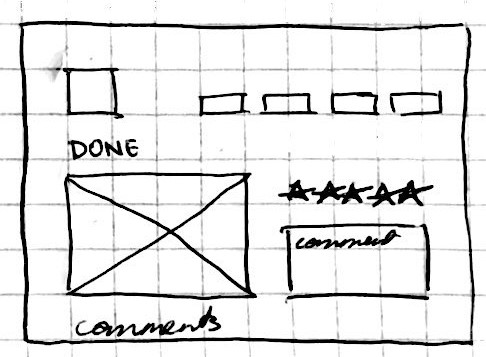 DONE
comment
comments